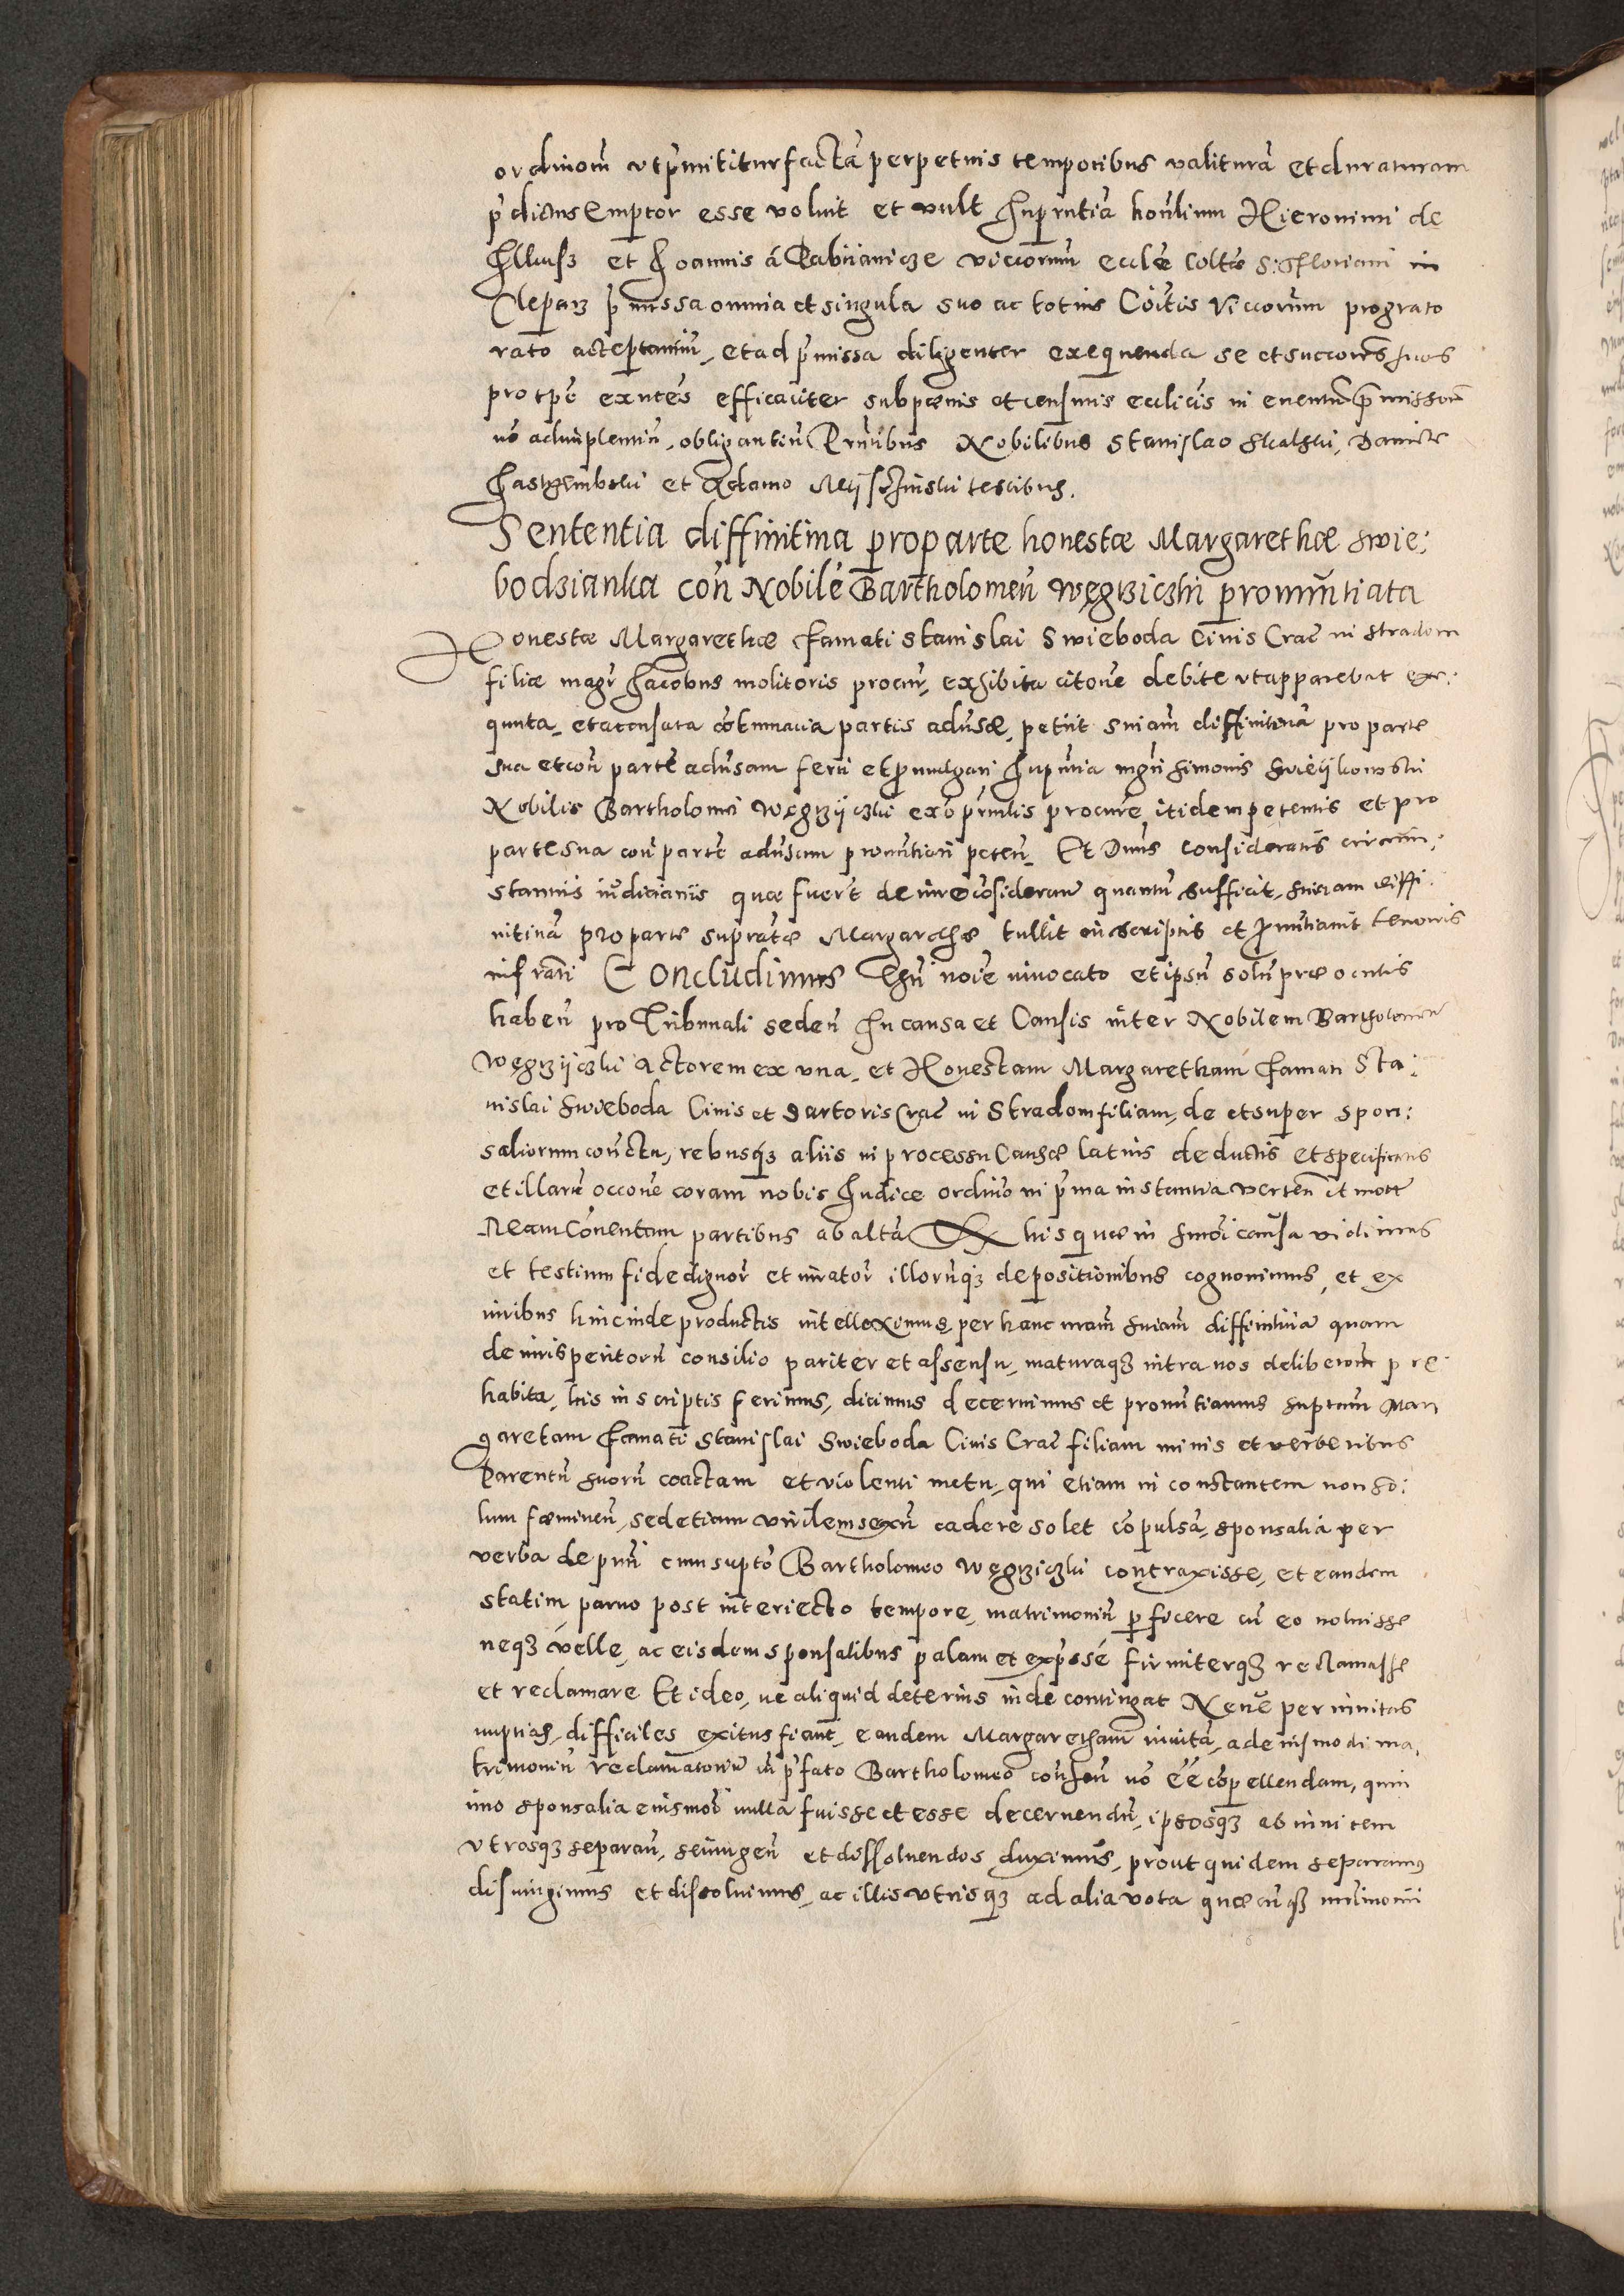 ordinom̃ vt p̃mititur factã perpetuis temporibus valiturã et duraturam
p̃dictus Emptor esse voluit et vult In p̃ntia hon̄lium Hieronimi de
Ilkusz et Joannis á Pabiianicze viccorum̃ eccl̃æ collt̃æ S. Floriani in
Cleparz p̃missa omnia et singula suo ac totius Cõitis Viccorum̃ pro grato
rato acceptantiũ, et ad p̃missa diligenter exequenda se et succores̃ suos
pro tp̃e exñtes efficaciter sub pœnis et censuris ecclicis in euentũ p̃missorũ
nõ adimpletiũ, obligantiũ P̃ntibus Nobilibus Stanislao Skalski, Daniele
Jastrzembski et Adamo Miisczinski testibus.
Sententia diffinitiua pro parte honestæ Margarethæ Swie:
bodzianka cõn Nobilẽ Bartholomeũ Węgrziczki pronuñtiata
Honestæ Margarethæ Famati Stanislai Swieboda Ciuis Crac̃ in Stradom
filiæ magr̃ Jacobus molitoris procur̃, exhibita citone debite vt apparebat exe:
quuta, et accusata cõtumacia partis aduersæ, petiit sniam̃ diffinitiuã pro parte
sua et con̄ parte aduersam ferri et p̃mulgari In p̃ntia mgr̃i Simonis Swieykowski
Nobilis Bartholomei Węgrziiczki ex õ p̃ntis procur̃e itidem petentis et pro
parte sua con̄ parte aduersam pronun̄tiari peten̄. Et Dnus consideratis circum:
stantiis iudiciariis quæ fuer̃t de iure cõsideran̄ quantũ sufficit, sniam diffi:
nitiuã pro parte supratæ Margarethæ tullit in scriptis et p̃nuntiauit tenoris
infrati Concludimus Chri noie inuocato et ipsũ solũ præ oculis
haben̄ pro Tribunali seden̄ In causa et Causis inter Nobilem Bartholomeũ
Węgrziiczki Actorem ex vna, et Honestam Margaretham Famati Sta:
nislai Swieboda Ciuis et Sartoris Crac̃ in Stradom filiam, de et super spon:
saliorum contc̃tu, rebusq̃ aliis in processu Causæ latius deductis et specificatis
et illarũ occone coram nobis Judice ordin̄o in p̃ma instantia verten̄ it mott
Ream Conuentam partibus ab altã Ex his quæ in hmõi causa vidimus
et testium fide dignor̃ et iurator̃ illorũq̃ depositionibus cognouimus, et ex
iuribus hincinde productis intelleximus, per hanc nram̃ sniam̃ diffinitiuã quam
de iurisperitorũ consilio pariter et assensu, maturaq̃ intra nos deliberon̄ præ
habita, his in scriptis ferimus, dicimus decernimus et pronũtiamus supratam̃ Mar
garetam Famati Stanislai Swieboda Ciuis Crac̃ filiam minis et verberibus
Parentũ suorũ coactam et violenti metu, qui etiam in constantem non so:
lum fœmineũ, sed etiam virilem sexũ cadere solet cõpulsã, sponsalia per
verba de p̃nti cum supto Bartholomeo Węgrziczki contraxisse, et eandem
statim paruo post interiecto tempore, matrimoniũ perficere cũ eo noluisse
neq̃ velle, ac eisdem sponsalibus palam et exp̃sse firmiterq̃ reclamasse
et reclamare Et ideo, ne aliquid deterius inde contingat Neue per inuitas
nuptias, difficiles exitus fiant, eandem Margaretham inuitã, ad eiusmodi ma:
trimoniũ reclamatoriũ in p̃fato Bartholomeo consen̄ nõ eẽ cõpellendam, quin
imo sponsalia eiusmodi nulla fuisse et esse decernendũ, ipsosq̃ ab inuicem
vtrosq̃ separan̄, seiungen̄ et dissoluendos duximus, prout quidem separamus
disiungimus et dissoluimus, ac illis vtrisq̃ ad alia vota quæcũq̃ mrimonii